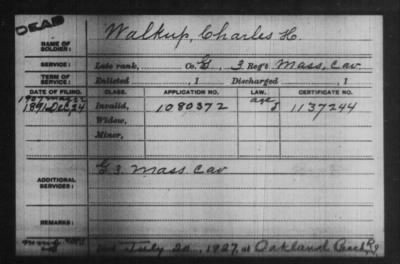 DEAD
NAME OF SOLDIER: Walkup, Charles H.
SERVICE: Late rank, Co. G, 3 Reg't Mass, Cav.
TERM OF SERVICE: Enlisted , 1 Discharged , 1
DATE OF FILING. CLASS. APPLICATION NO. LAW. CERTIFICATE NO.
1907
1891 Dec 24 Invalid, 1080372 1137244
Widow,
Minor,
ADDITIONAL SERVICES: G 3 Mass Cav
REMARKS:
Died July 20, 1927, at Oakland Beach R.I.